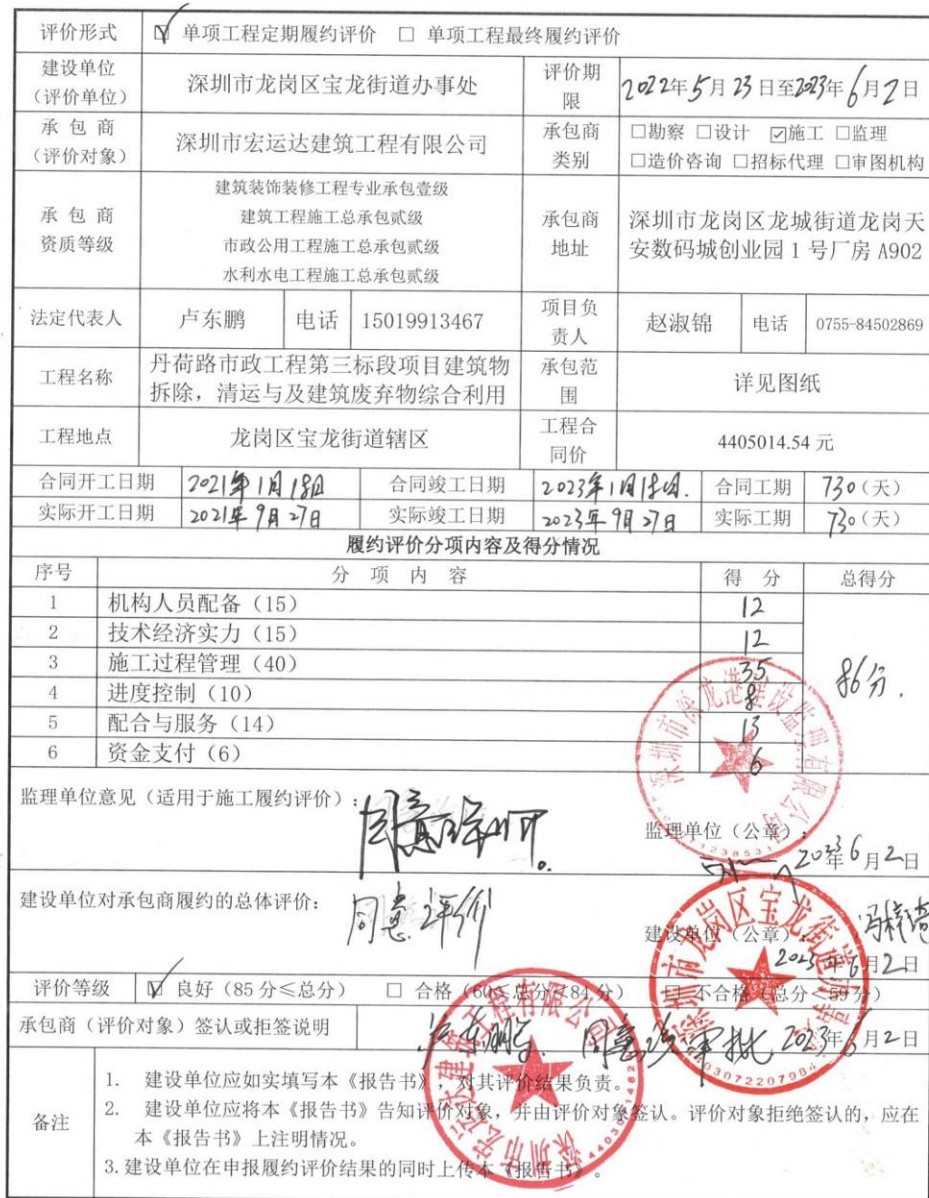 评价形式 ☑ 单项工程定期履约评价 □ 单项工程最终履约评价
建设单位（评价单位） 深圳市龙岗区宝龙街道办事处 评价期限 2022年5月23日至2023年6月2日
承包商（评价对象） 深圳市宏运达建筑工程有限公司 承包商类别 □勘察 □设计 ☑施工 □监理
□造价咨询 □招标代理 □审图机构
承包商资质等级 建筑装饰装修工程专业承包壹级
建筑工程施工总承包贰级
市政公用工程施工总承包贰级
水利水电工程施工总承包贰级
承包商地址 深圳市龙岗区龙城街道龙岗天
安数码城创业园 1 号厂房 A902
法定代表人 卢东鹏 电话 15019913467 项目负责人 赵淑锦 电话 0755-84502869
工程名称 丹荷路市政工程第三标段项目建筑物
拆除，清运与及建筑废弃物综合利用
承包范围 详见图纸
工程地点 龙岗区宝龙街道辖区 工程合同价 4405014.54 元
合同开工日期 2021年1月18日 合同竣工日期 2023年1月18日. 合同工期 730（天）
实际开工日期 2021年9月27日 实际竣工日期 2023年9月27日 实际工期 730（天）
履约评价分项内容及得分情况
序号 分 项 内 容 得 分 总得分
1 机构人员配备（15） 12
2 技术经济实力（15） 12
3 施工过程管理（40） 35
4 进度控制（10） 8
5 配合与服务（14） 13
6 资金支付（6） 6
86分.
监理单位意见（适用于施工履约评价）：
同意
监理单位（公章）：
2023年6月2日
建设单位对承包商履约的总体评价：
同意评价
建设单位（公章）：
2023年6月2日
评价等级 ☑ 良好（85 分≤总分） □ 合格（60≤总分≤84 分） □ 不合格（总分≤59 分）
承包商（评价对象）签认或拒签说明 同意 审批 2023年6月2日
备注
1. 建设单位应如实填写本《报告书》，对其评价结果负责。
2. 建设单位应将本《报告书》告知评价对象，并由评价对象签认。评价对象拒绝签认的，应在
本《报告书》上注明情况。
3.建设单位在申报履约评价结果的同时上传本《报告书》。